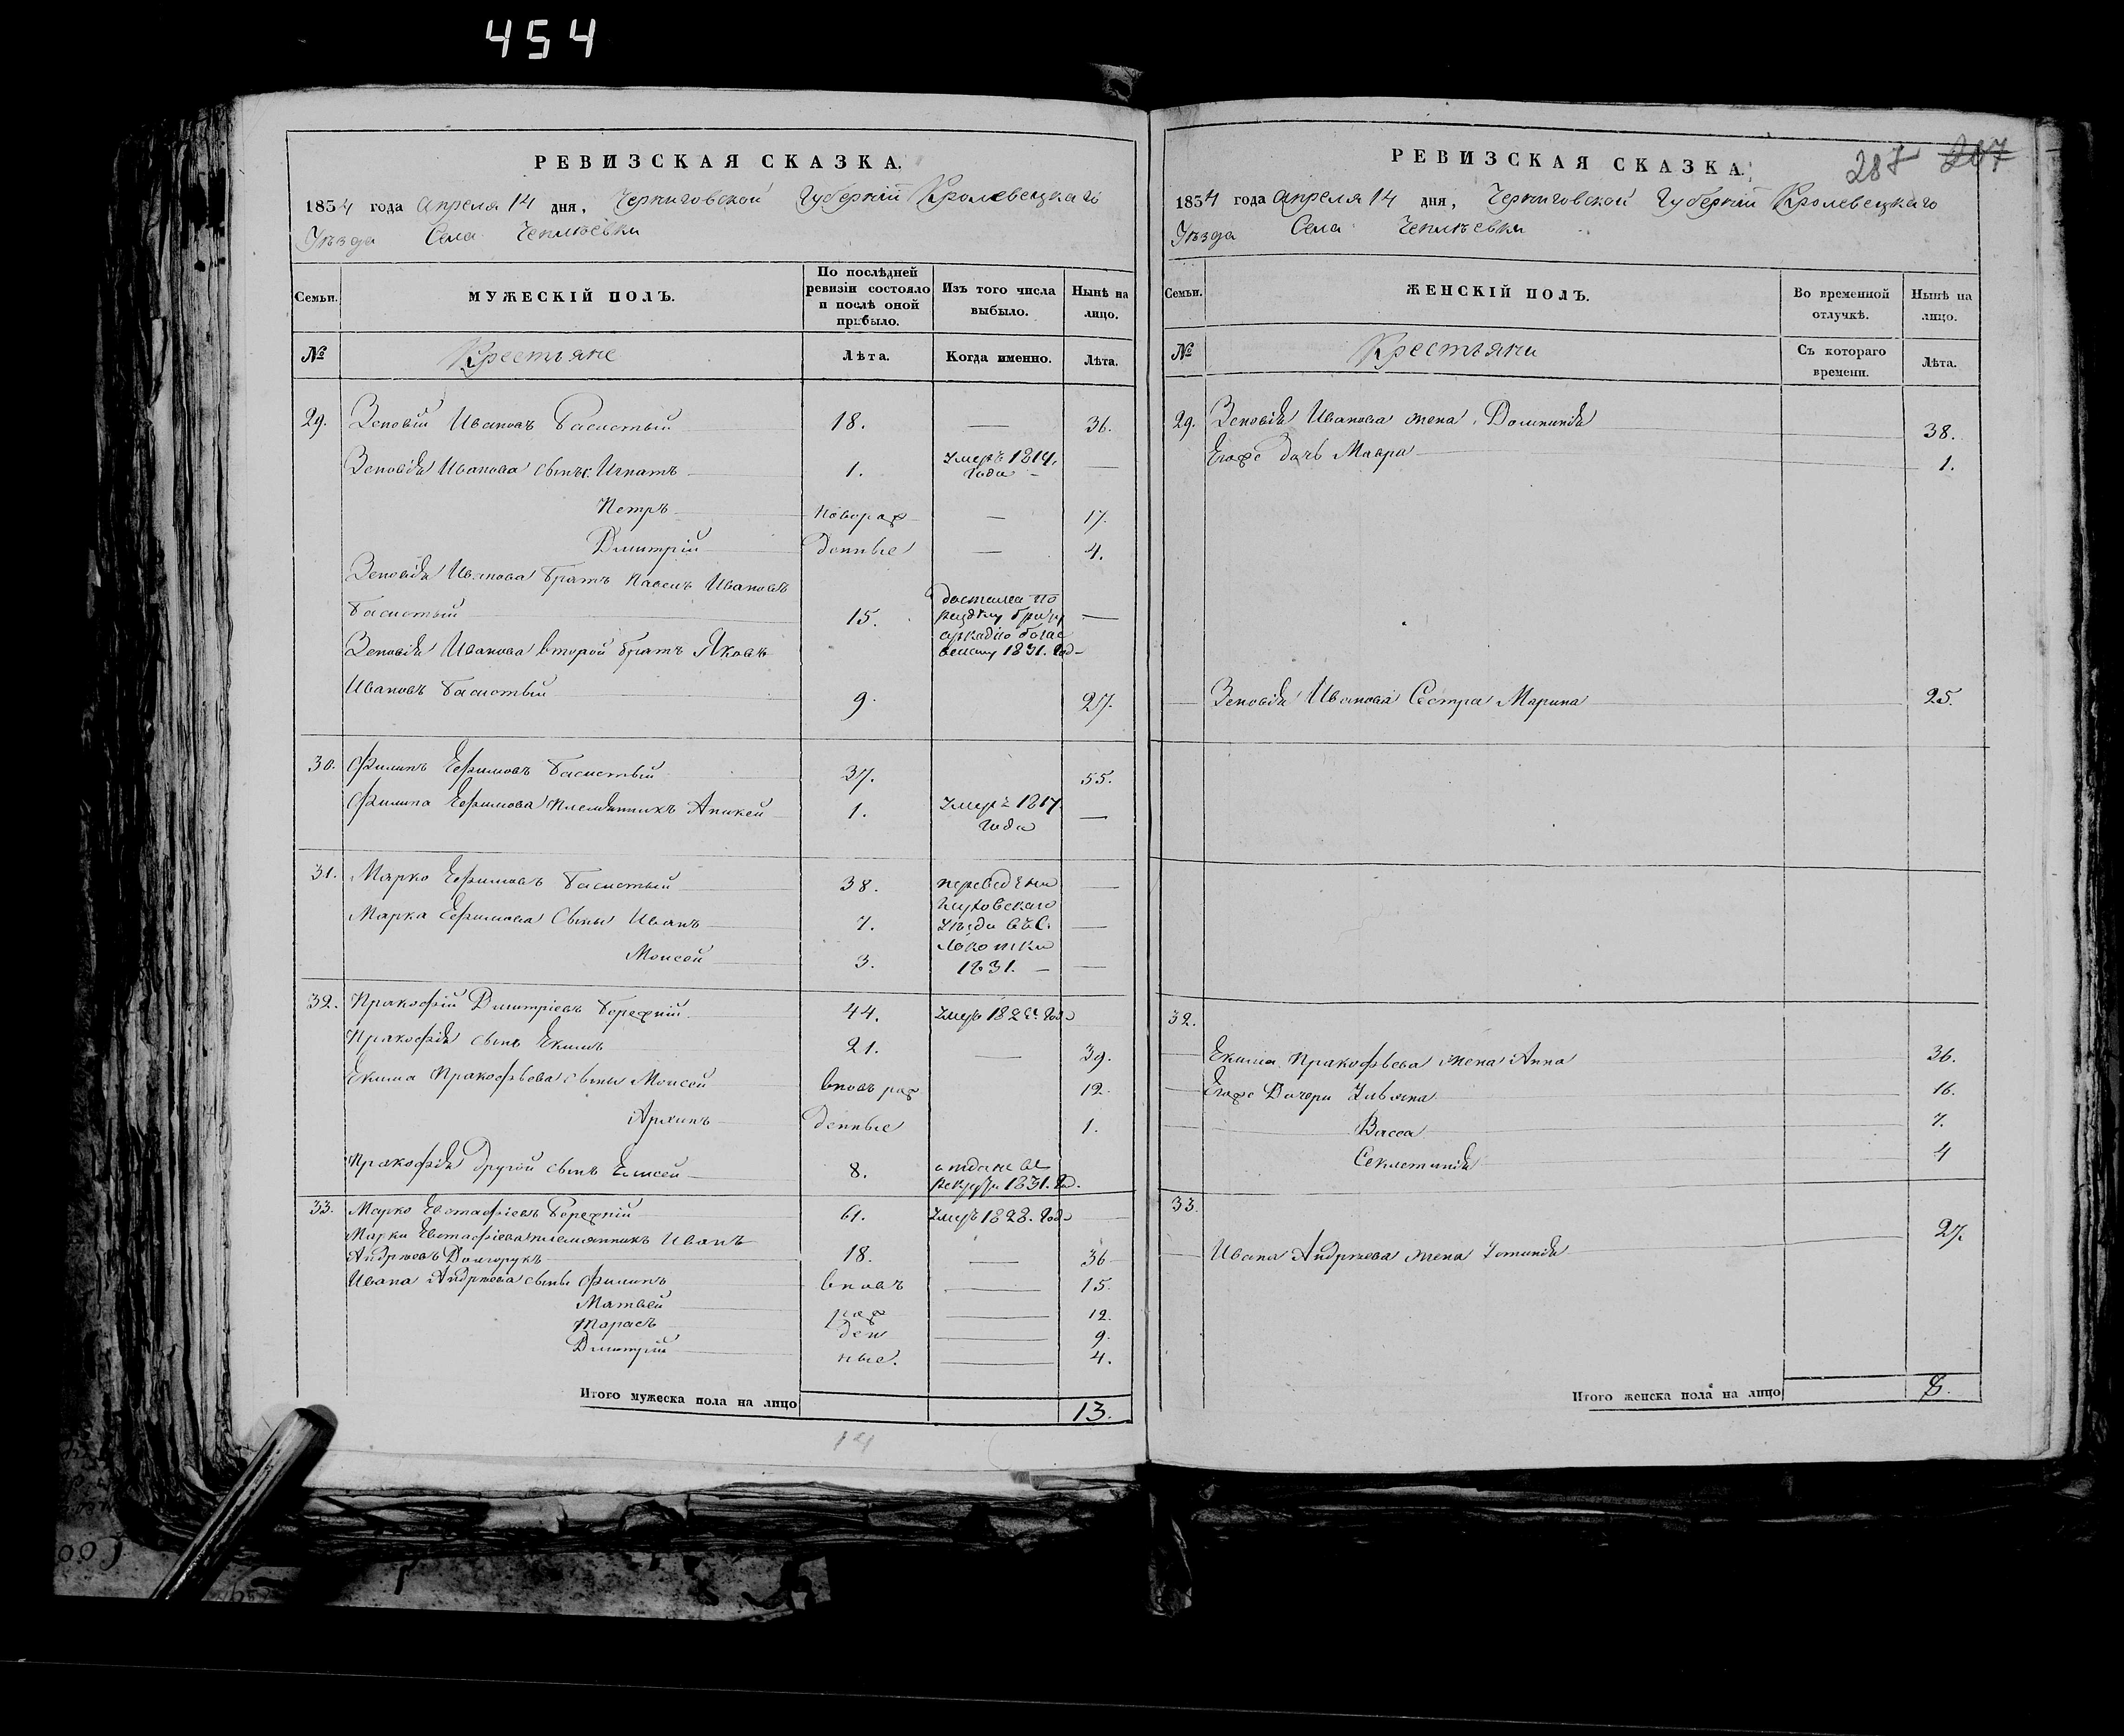 454
РЕВИЗСКАЯ СКАЗКА.
1834 года Апреля 14 дня, Черниговской Губернїи Кролевецкаго
Уѣзда Села Чеплѣевки
Семьи.
МУЖЕСКІЙ ПОЛЪ.
По послѣдней ревизіи состояло и послѣ оной прибыло.
Изъ того числа выбыло.
Нынѣ на лицо.
№
Крестьяне
Лѣта.
Когда именно.
Лѣта.
29. Зеновій Ивановъ Басистый 18. — 36.
Зеновія Иванова сынъ: Игнатъ 1. умеръ 1819. года —
Петръ новорож — 17.
Дмитрій денные — 4.
Зеновія Иванова братъ Павелъ Ивановъ
Басистый 15. —
1831. год
Зеновія Иванова второй братъ Яковъ
Ивановъ Басистый 9. 27.
30. Филипъ Ефимовъ Басистый 37. 55.
Филипа Ефимова племянникъ Аникей 1. умеръ 1817 года —
31. Марко Ефимовъ Басистый 38. переведены —
Глуховскаго
Марка Ефимова сыны Иванъ 7. уѣзда въ с. —
Моисей 3. 1831. — —
32. Пракофій Дмитріевъ Бережній 44. умеръ год
Пракофія сынъ Екимъ 21. — 39.
Екима Пракофьева сыны Моисей вновь рож 12
Архипъ денные 1.
Пракофія другой сынъ Елисей 8. отдан в рекруты 1831. год.
33. Марко Евстафіевъ Бережній 61. умеръ 1828. год
Марки Евстафіева племянникъ Иванъ
Андрѣевъ Долгорукъ 18. — 36
Ивана Андрѣева сыны Филипъ вновь — 15.
Матвей рож — 12.
Тарасъ ден — 9.
Дмитрій ные. — 4.
Итого мужеска пола на лицо 13.
14
РЕВИЗСКАЯ СКАЗКА.
287 207
1834 года Апреля 14 дня, Черниговской Губернїи Кролевецкаго
Уѣзда Села Чеплѣевки
Семьи.
ЖЕНСКІЙ ПОЛЪ.
Во временной отлучкѣ.
Нынѣ на лицо.
№
Крестьяни
Съ котораго времени.
Лѣта.
29. Зеновія Иванова жена Домникія 38.
Егоже дочь Мавра 1.
Зеновія Иванова Сестра Марина 25.
32.
Екима Пракофьева жена Анна 36.
Егоже Дочери Ульяна 16.
Васса 7.
Секлетинія 4
33.
Ивана Андрѣева жена 27.
Итого женска пола на лицо 8.